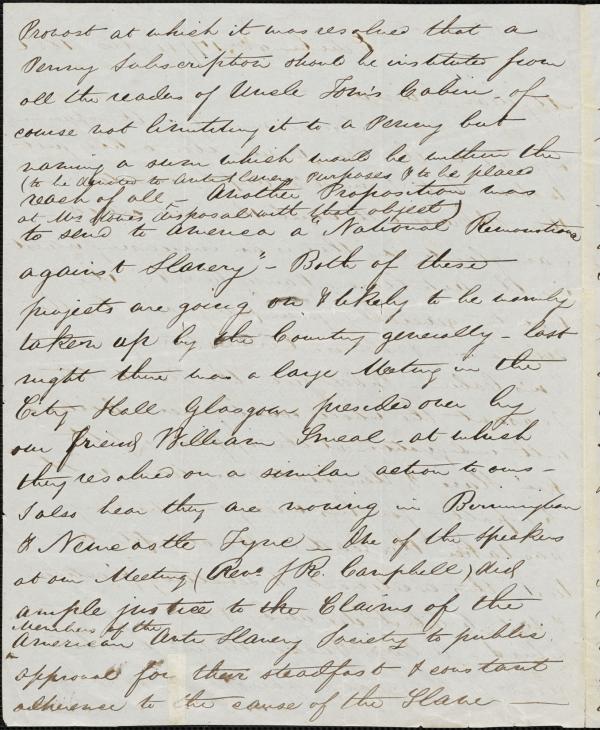 Provost at which it was resolved that a
Penny Subscription should be instituted from
all the readers of Uncle Tom's Cabin, of
course not limiting it to a Penny but
naming a sum which would be within the
(to be devoted to Anti Slavery purposes & to be placed
reach of all - Another Proposition was
at Mrs Stowe's disposal with that object)
to send to America a "National Remonstrance
against Slavery" - Both of these
projects are going on & likely to be warmly
taken up by the Country generally - last
night there was a large Meeting in the
City Hall Glasgow presided over by
our friend William Smeal - at which
they resolved on a similar action to ours -
I also hear they are moving in Birmingham
& Newcastle Tyne - One of the speakers
at our Meeting (Revd. J R. Campbell) did
ample justice to the Claims of the
Members of the
American Anti Slavery Society to public
approval for their steadfast & constant
adherence to the cause of the Slave -